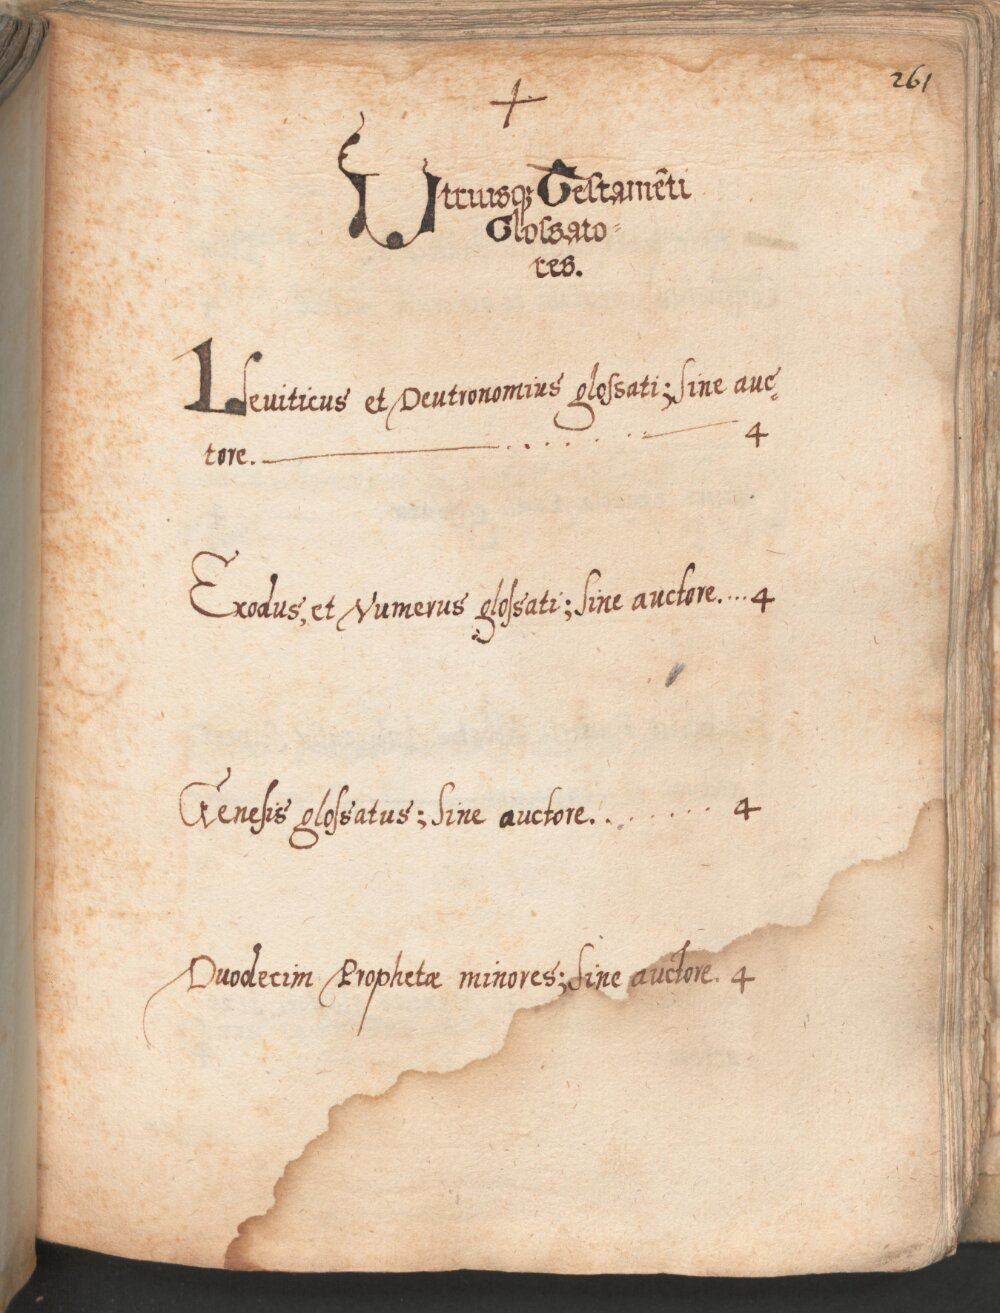 261
+
Utriusq; Testamēti
Glossato-
res.
Leuiticus et Deutronomius glossati; sine auc-
tore. 4
Exodus, et Numerus glossati; sine auctore.... 4
Genesis glossatus; sine auctore. . . . . . . 4
Duodecim Prophetæ minores; sine auctore. 4